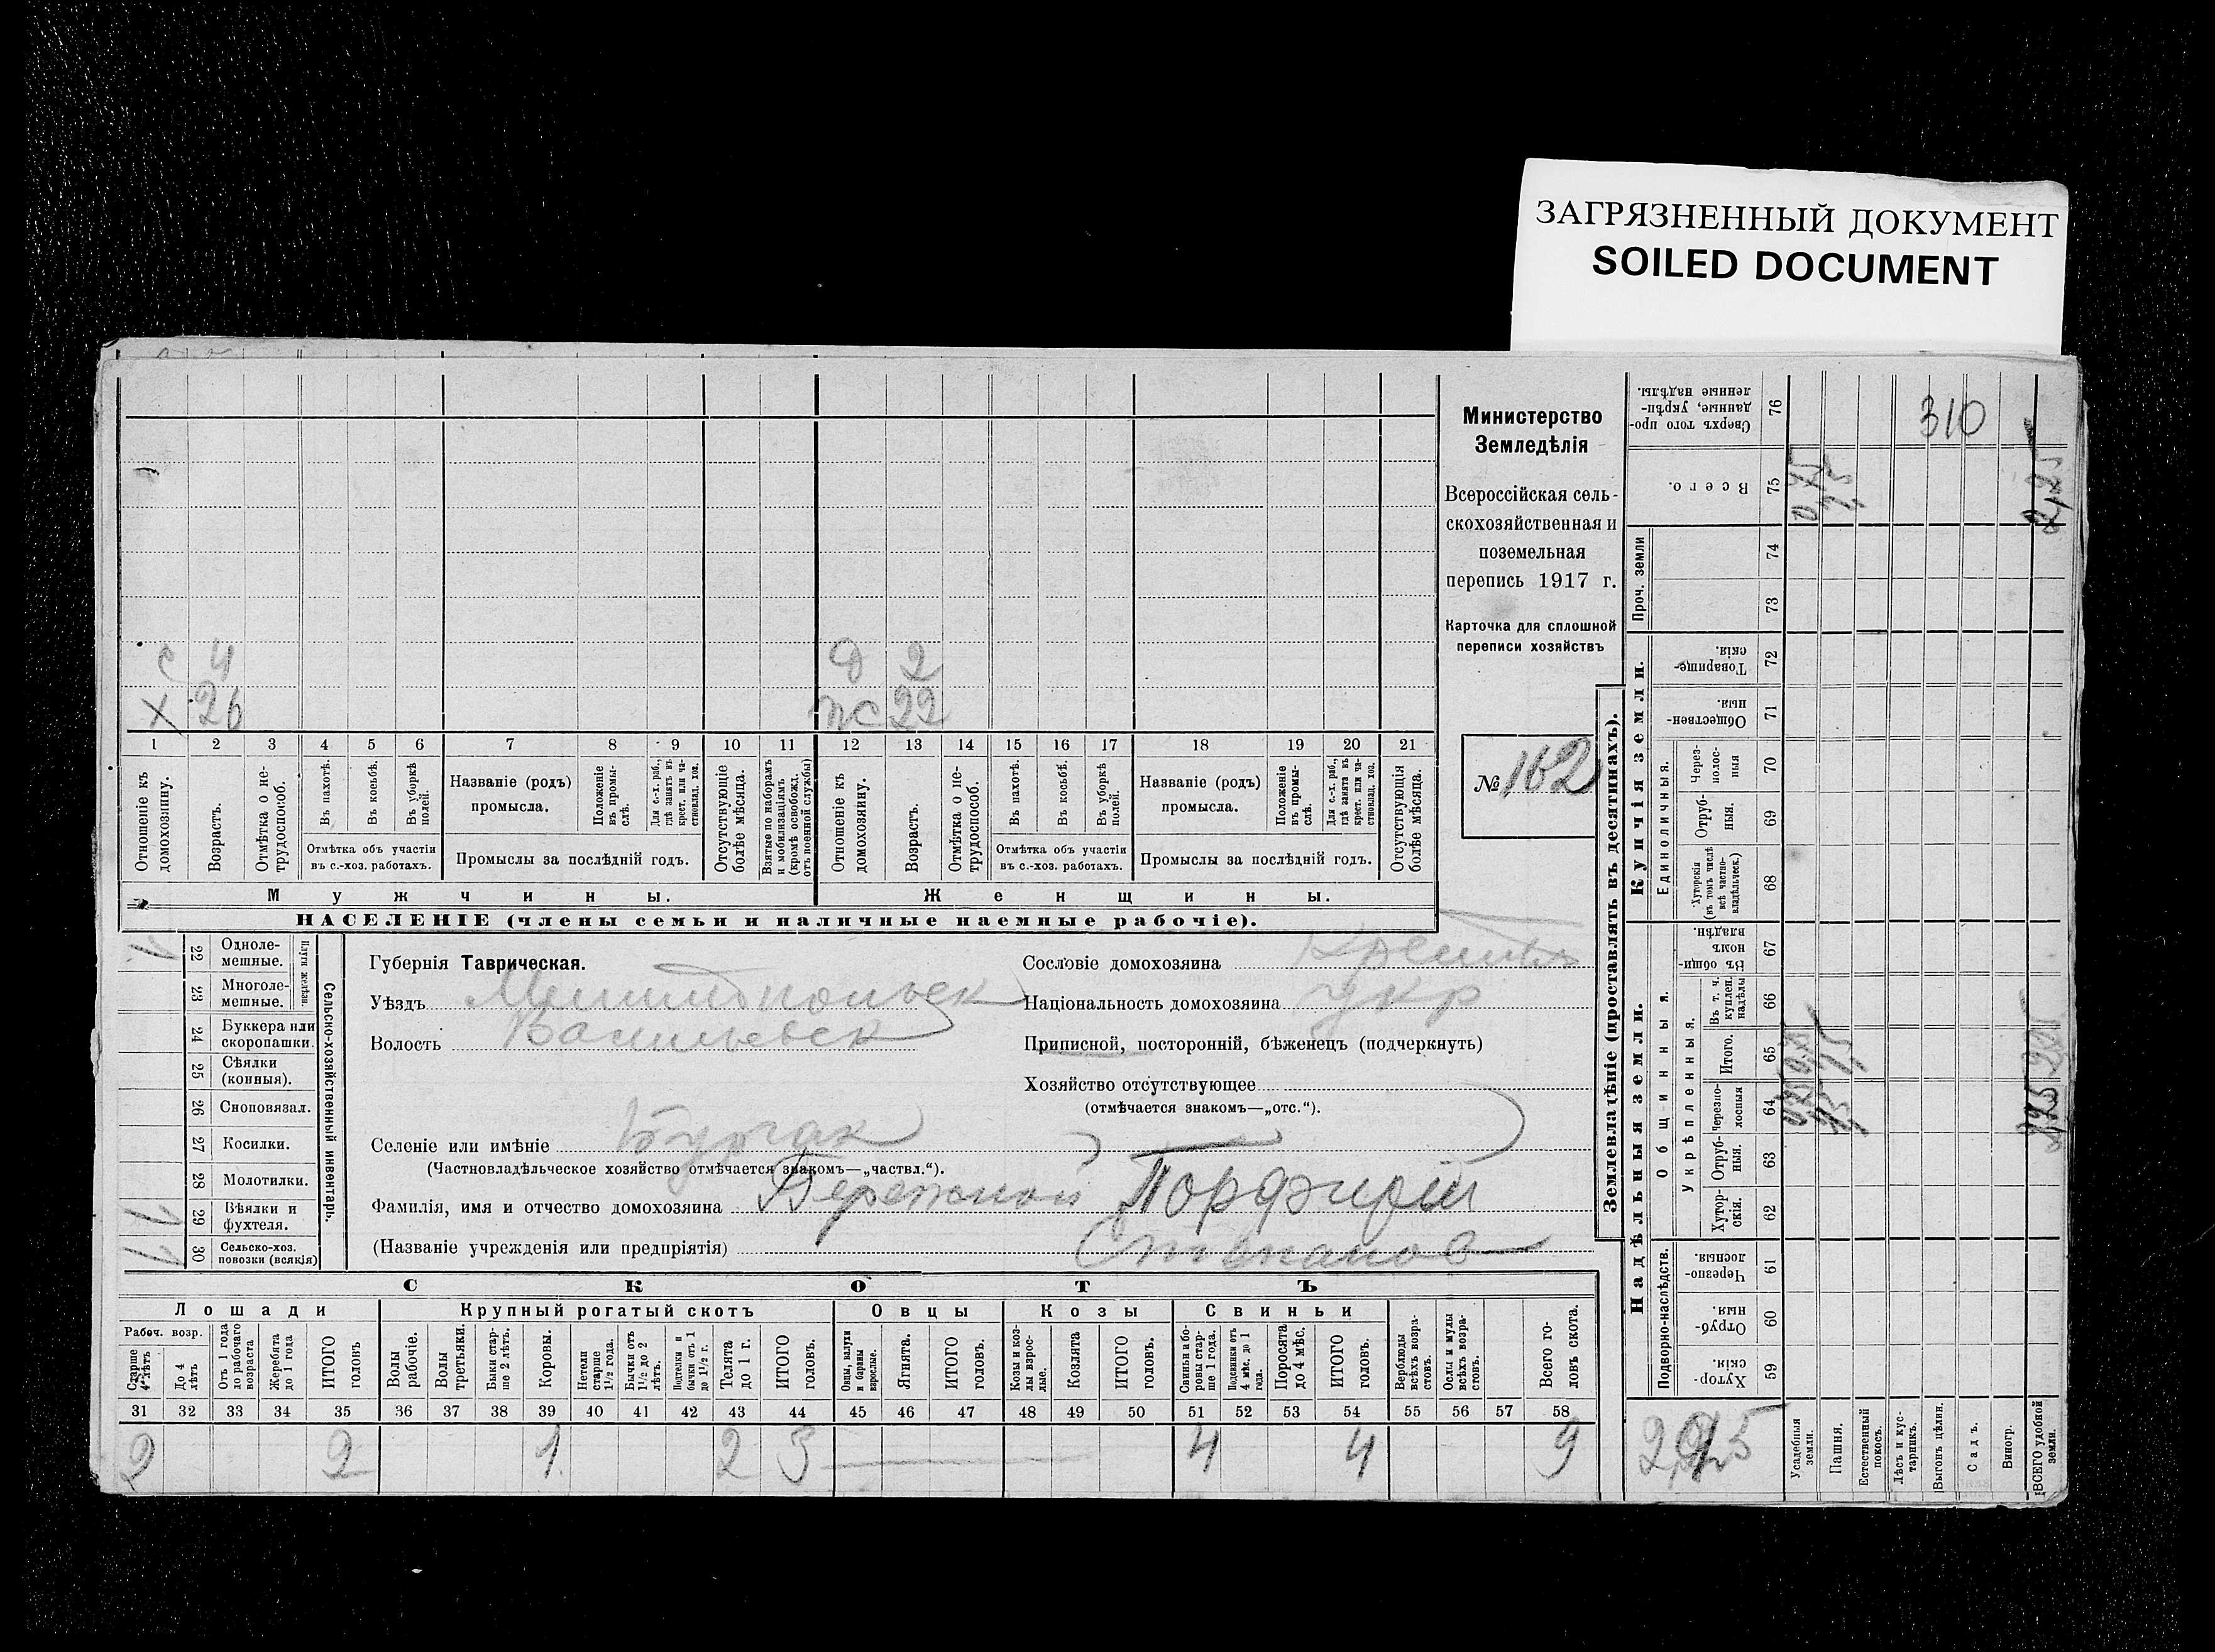 ЗАГРЯЗНЕННЫЙ ДОКУМЕНТ
SOILED DOCUMENT
Министерство
Земледѣлія
Всероссійская сель-
скохозяйственная и
поземельная
перепись 1917 г.
Карточка для сплошной
переписи хозяйствъ
№ 162
с 4 д 2
х 26 жс 22
1 2 3 4 5 6 7 8 9 10 11 12 13 14 15 16 17 18 19 20 21
Отношеніе къ домохозяину.
Возрастъ.
Отмѣтка о не-трудоспособ.
Въ пахотѣ.
Въ косьбѣ.
Въ уборкѣ полей.
Отмѣтка объ участіи
въ с.-хоз. работахъ.
Названіе (родъ)
промысла.
Положеніе въ промы-слѣ.
Для с.-х. раб., гдѣ занятъ въ крест. или ча-стновлад. хоз.
Промыслы за послѣдній годъ.
Отсутствующіе болѣе мѣсяца.
Взятые по наборамъ и мобилизаціямъ (кромѣ освобожд. отъ военной службы)
Отношеніе къ домохозяину.
Возрастъ.
Отмѣтка о не-трудоспособ.
Въ пахотѣ.
Въ косьбѣ.
Въ уборкѣ полей.
Отмѣтка объ участіи
въ с.-хоз. работахъ.
Названіе (родъ)
промысла.
Положеніе въ промы-слѣ.
Для с.-х. раб., гдѣ занята въ крест. или ча-стновлад. хоз.
Промыслы за послѣдній годъ.
Отсутствующія болѣе мѣсяца.
Мужчины. Женщины.
НАСЕЛЕНІЕ (члены семьи и наличные наемные рабочіе).
1 22 Одноле-мешные.
23 Многоле-мешные.
Плуги желѣзн.
24 Буккера или скоропашки.
25 Сѣялки (конныя).
26 Сноповязал.
27 Косилки.
28 Молотилки.
1 29 Вѣялки и фухтеля.
1 30 Сельско-хоз. повозки (всякія)
Сельско-хозяйственный инвентарь.
Губернія Таврическая.
Уѣздъ Мелитопольск
Волость Васильевск
Селеніе или имѣніе Бурчак
(Частновладѣльческое хозяйство отмѣчается знакомъ—„частвл.“).
Фамилія, имя и отчество домохозяина Бережной Порфирій
(Названіе учрежденія или предпріятія) Степанов
Сословіе домохозяина
Національность домохозяина укр
Приписной, посторонній, бѣженецъ (подчеркнуть)
Хозяйство отсутствующее
(отмѣчается знакомъ—„отс.“).
СКОТЪ
Лошади Крупный рогатый скотъ Овцы Козы Свиньи
Рабоч. возр.
Старше 4 лѣтъ
До 4 лѣтъ
Отъ 1 года до рабочаго возраста
Жеребята до 1 года
ИТОГО головъ
Волы рабочіе.
Волы третьяки.
Быки стар-ше 2 лѣтъ.
Коровы.
Нетели старше 1½ года.
Бычки отъ 1½ до 2 лѣтъ.
Подтелки и бычки отъ 1 до 1½ г.
Телята до 1 г.
ИТОГО головъ.
Овцы, валухи и бараны взрослые.
Ягнята.
ИТОГО головъ.
Козы и коз-лы взрос-лые.
Козлята
ИТОГО головъ.
Свиньи и бо-ровы стар-ше 1 года.
Подсвинки отъ 4 мѣс. до 1 года.
Поросята до 4 мѣс.
ИТОГО головъ.
Верблюды всѣхъ возра-стовъ.
Ослы и мулы всѣхъ возра-стовъ.
Всего го-ловъ скота.
31 32 33 34 35 36 37 38 39 40 41 42 43 44 45 46 47 48 49 50 51 52 53 54 55 56 57 58
2 2 1 2 3 4 4 9
Землевладѣніе (проставлять въ десятинахъ).
Надѣльныя земли.
Купчія земли.
Проч. земли
Сверхъ того про-данные, укрѣп-ленные надѣлы. 76 310
Всего. 75 0,45
74
73
Товарище-скія. 72
Обществен-ныя. 71
Единоличныя.
Через-полос-ныя 70
Отруб-ныя. 69
Хуторскія (въ томъ числѣ всѣ частно-владѣльческ.) 68
Общинныя.
Въ общи-номъ владѣн. 67
Укрѣпленныя.
Въ т. ч. куплен. надѣлы 66
Итого. 65
Черезпо-лосныя 64
Отруб-ныя. 63
Хутор-скія. 62
Подворно-наслѣдств.
Черезпо-лосныя. 61
Отруб-ныя. 60
Хутор-скія. 59
Усадебныя земли.
Пашня.
Естественный покосъ.
Лѣсъ и кус-тарникъ.
Выгонъ цѣлин.
Садъ.
Виногр.
ВСЕГО удобной земли.